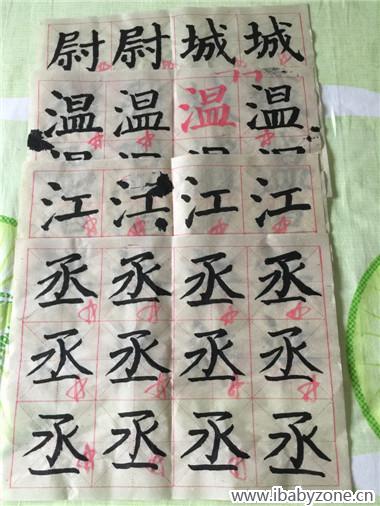 尉尉城城
温温温温
江江江江
丞丞丞丞
丞丞丞丞
丞丞丞丞
www.ibabyzone.cn